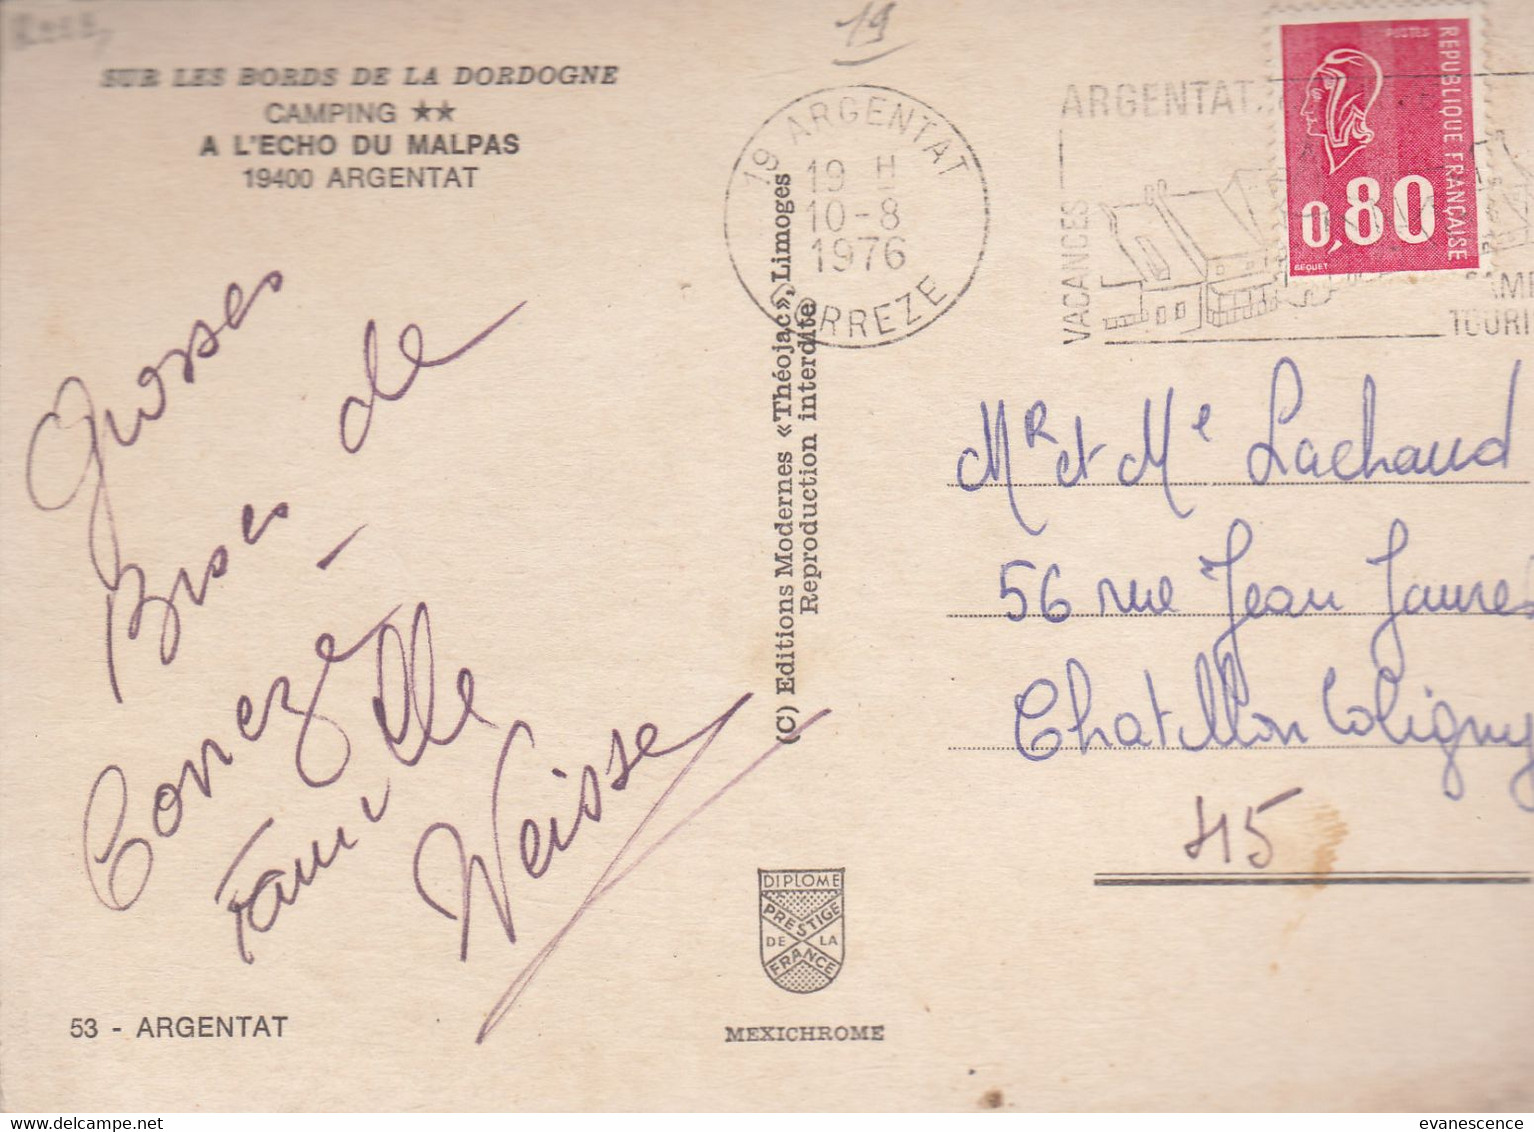 19
SUR LES BORDS DE LA DORDOGNE
CAMPING ★★
A L'ECHO DU MALPAS
19400 ARGENTAT
19 ARGENTAT
19 H
10-8
1976
CORREZE
ARGENTAT
VACANCES
CAMP
TOURI
POSTES
REPUBLIQUE FRANÇAISE
0,80
BEQUET
Grosses
Bises de
Correze -
Famille
Weisse
(C) Editions Modernes «Théojac», Limoges
Reproduction interdite
Mr et Me Lachaud
56 rue Jean Jaures
Chatillon Coligny
45
DIPLOME
PRESTIGE
DE LA
FRANCE
MEXICHROME
53 - ARGENTAT
evanescence